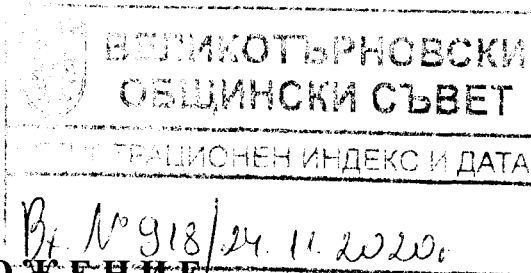 ВЕЛИКОТЪРНОВСКИ
ОБЩИНСКИ СЪВЕТ
ИНДЕКС И ДАТА
Вх. № 918/24.11.2020г